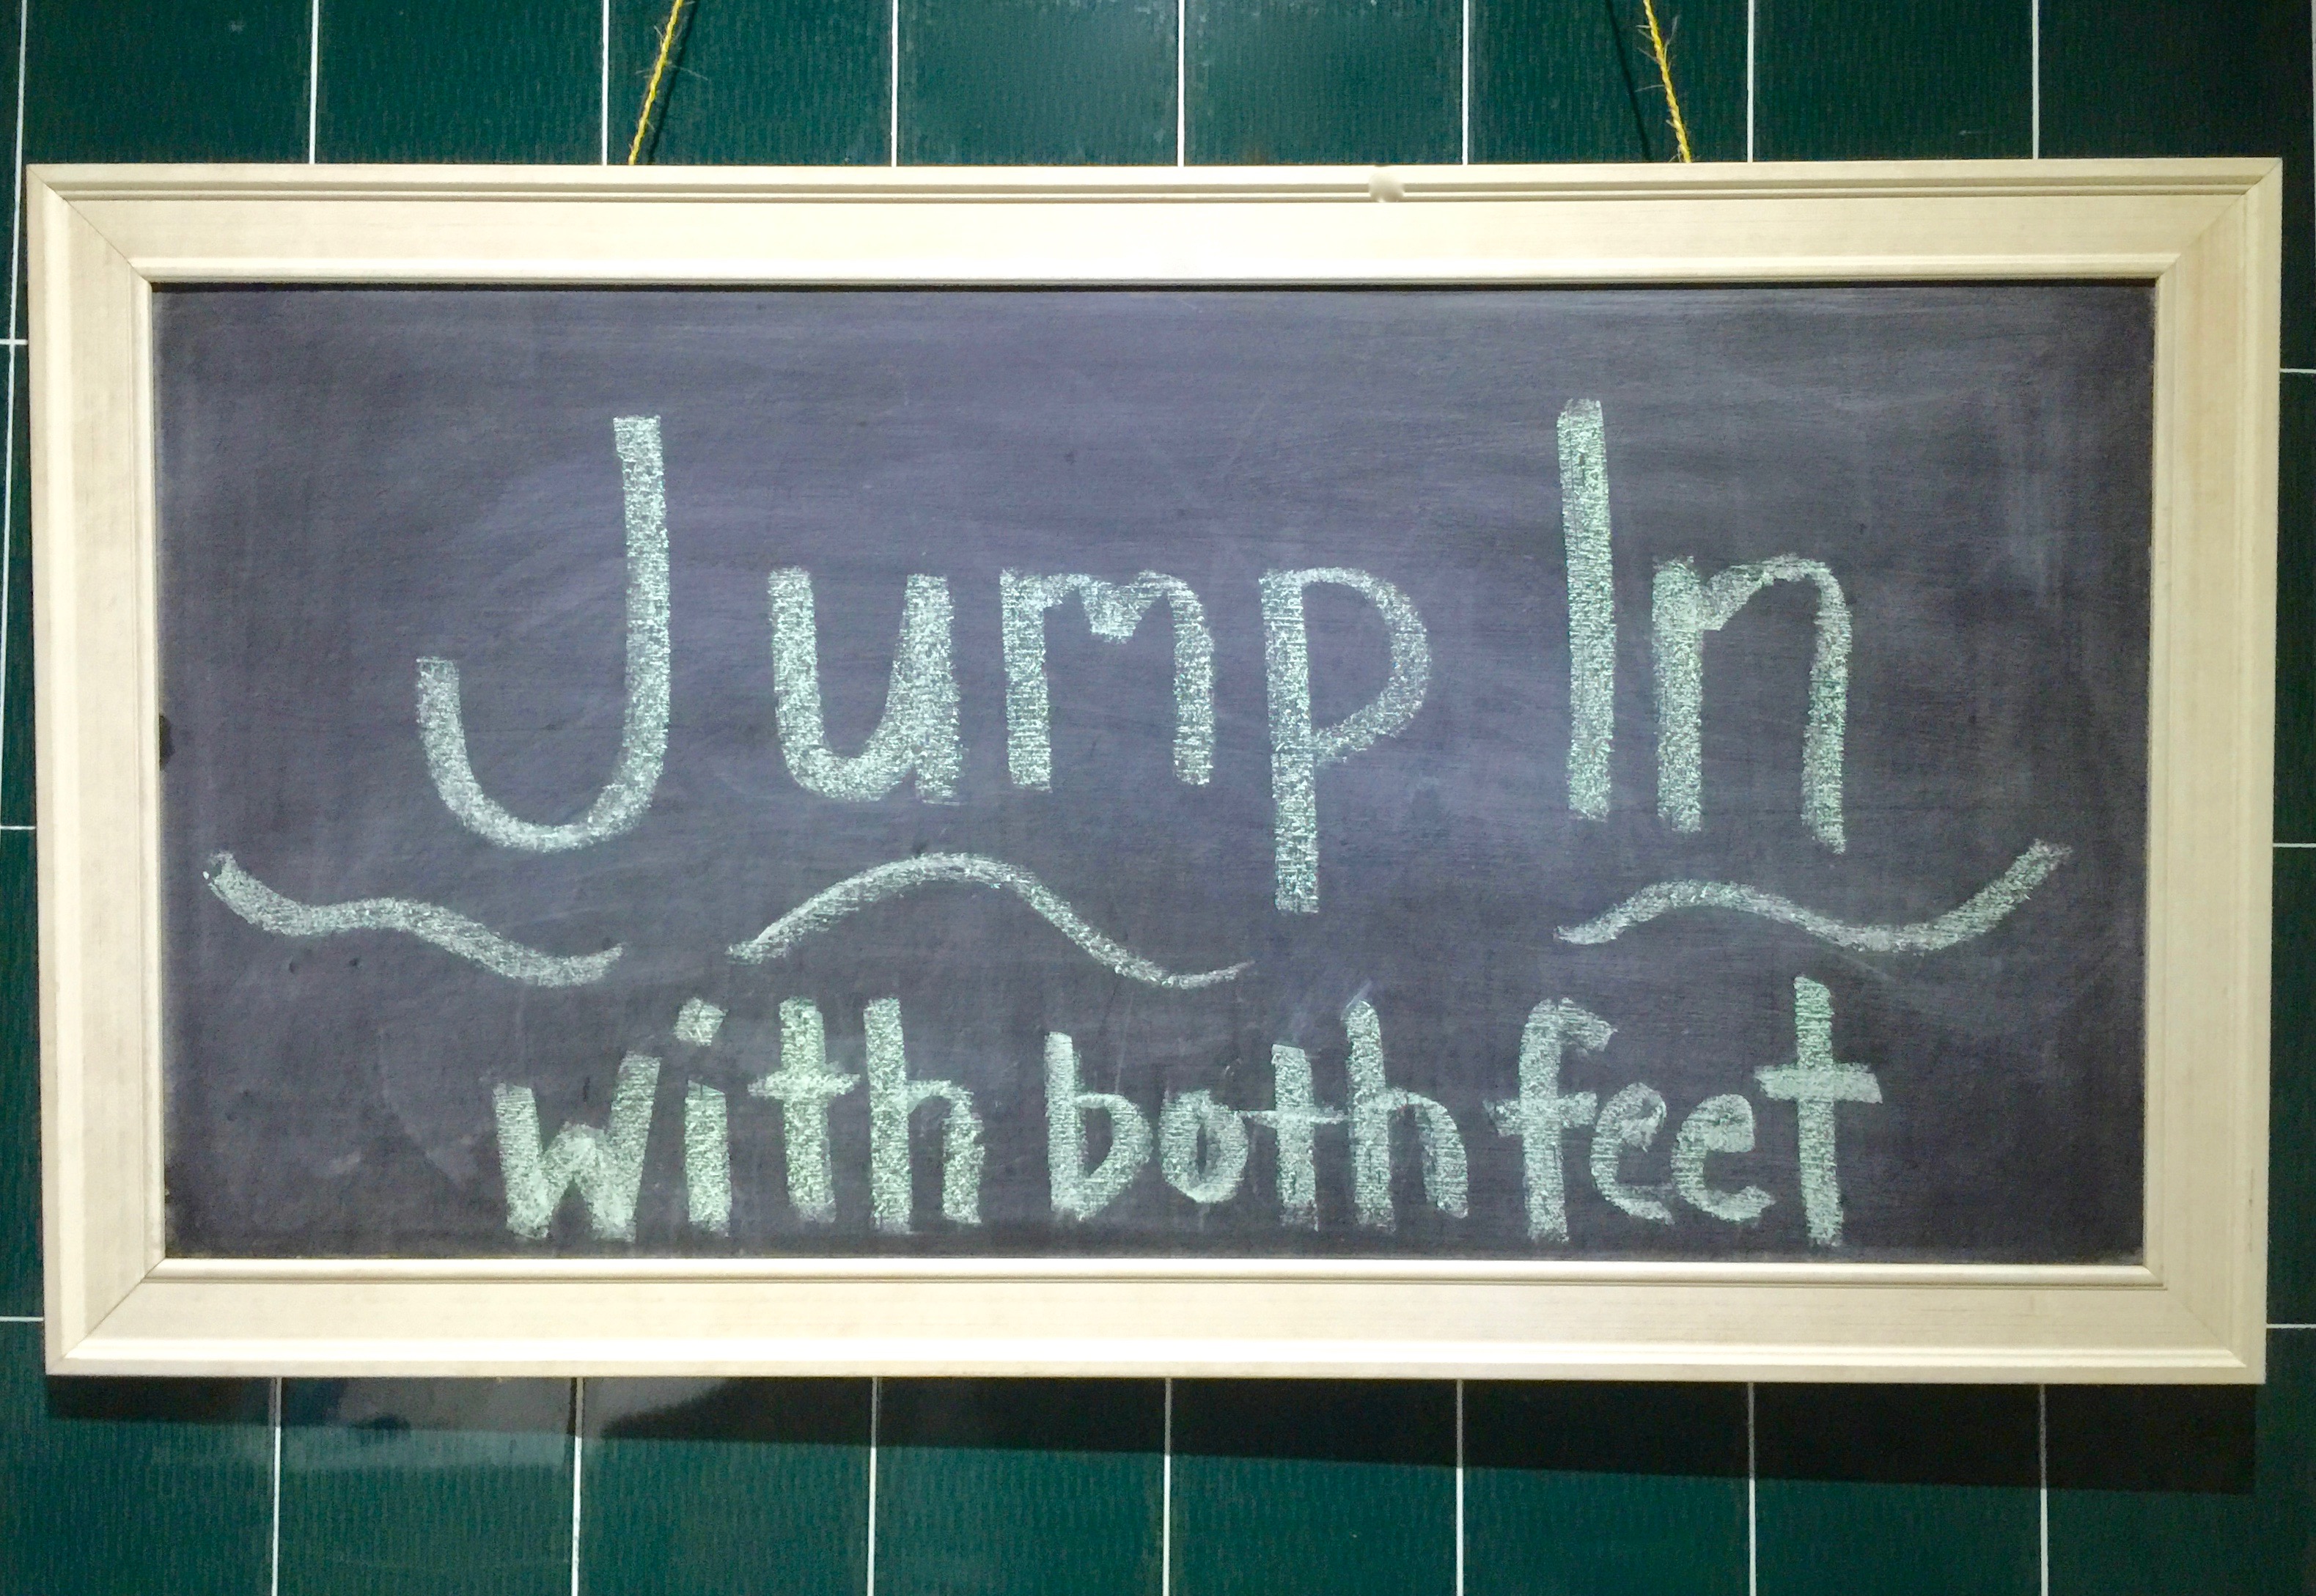 Jump In
with both feet